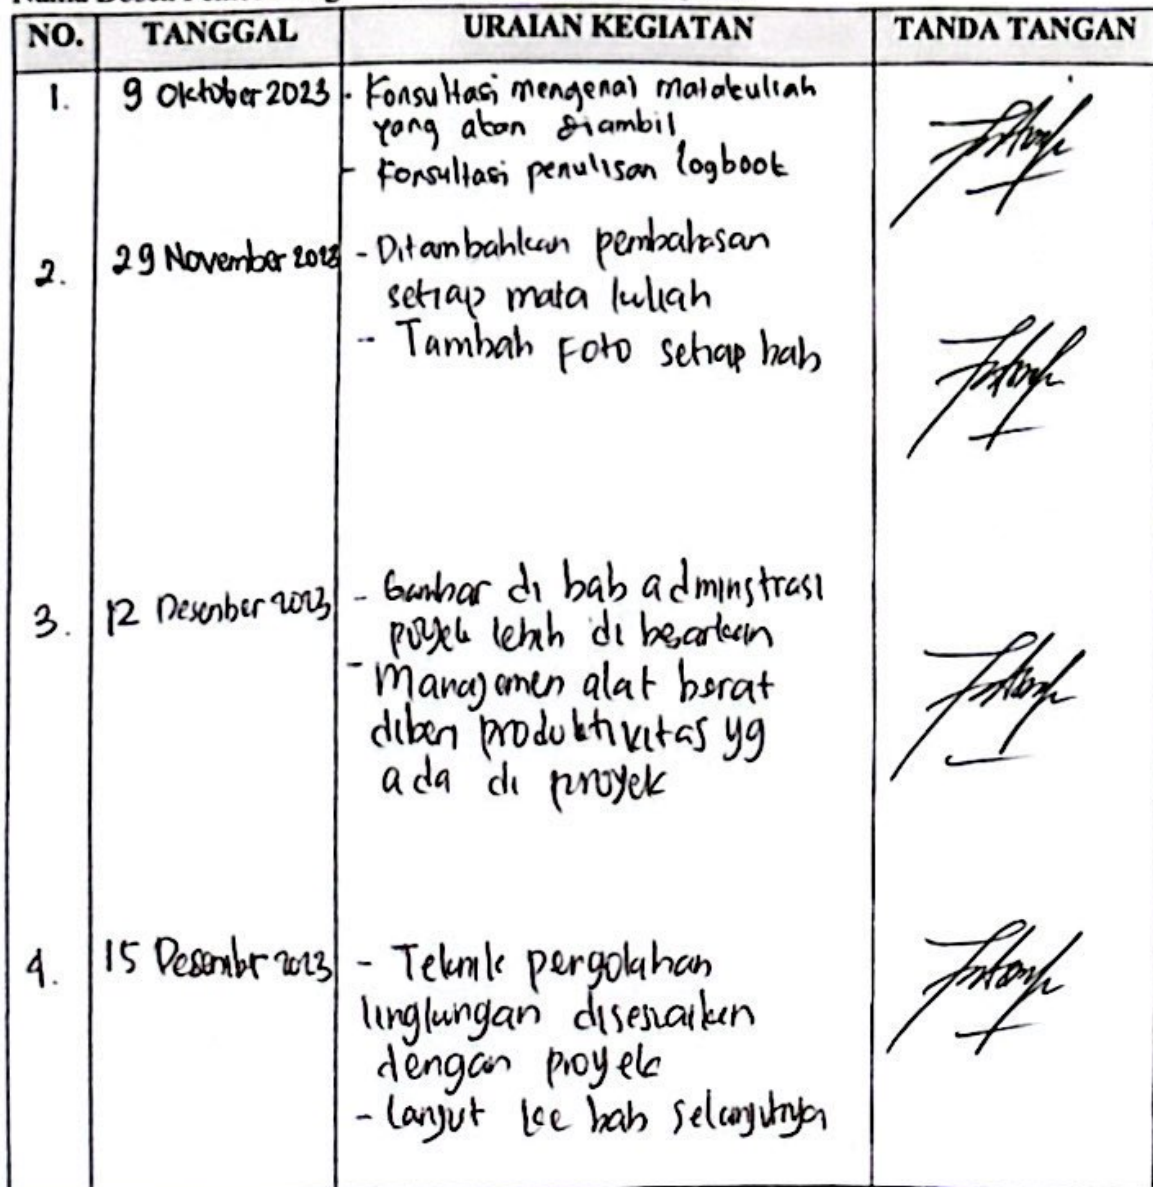 NO. TANGGAL URAIAN KEGIATAN TANDA TANGAN
1. 9 Oktober 2023 - Konsultasi mengenai matakuliah
yang akan diambil
- Konsultasi penulisan logbook
2. 29 November 2023 - Ditambahkan pembahasan
setiap mata kuliah
- Tambah Foto setiap bab
3. 12 Desember 2023 - Gambar di bab adminstrasi
proyek lebih di besarkan
- Manajemen alat berat
diberi produktivitas yg
ada di proyek
4. 15 Desember 2023 - Teknik pergolahan
lingkungan disesuaikan
dengan proyek
- Lanjut ke bab selanjutnya